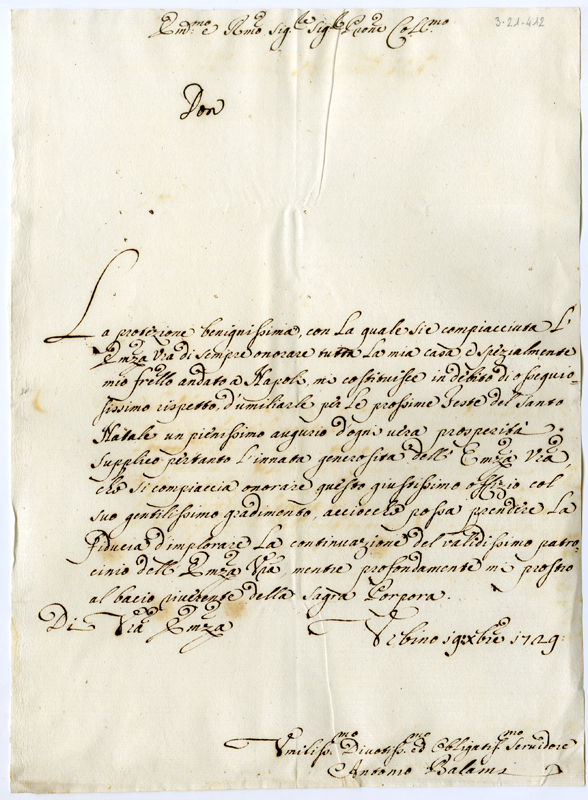 Em.mo e Rmo Sig.re Sig.re Prone Coll.mo
3-21-412
Don
La protezione benignissima, con la quale si è compiacciuta l'
Emza Vra di sempre onorare tutta la mia casa, e spezialmente
mio frello andato a Napoli, mi costituisce in debito di ossequio-
sissimo rispetto, d'umiliarle per le prossime Feste del Santo
Natale un pienissimo augurio d'ogni vera prosperità.
Supplico pertanto l'innata generosità dell' Emza Vra,
che si compiaccia onorare questo giustissimo offizio col
suo gentilissimo gradimento, acciocchè possa prendere la
fiducia d'implorare la continuazione del validissimo patro-
cinio dell' Emza Vra, mentre profondamente mi prostro
al bacio riverente della Sagra Porpora.
Di Vra Emza Urbino 19 Xbre 1729.
Umiliss.mo Divotiss.mo ed Obligatiss.mo Servidore
Antonio